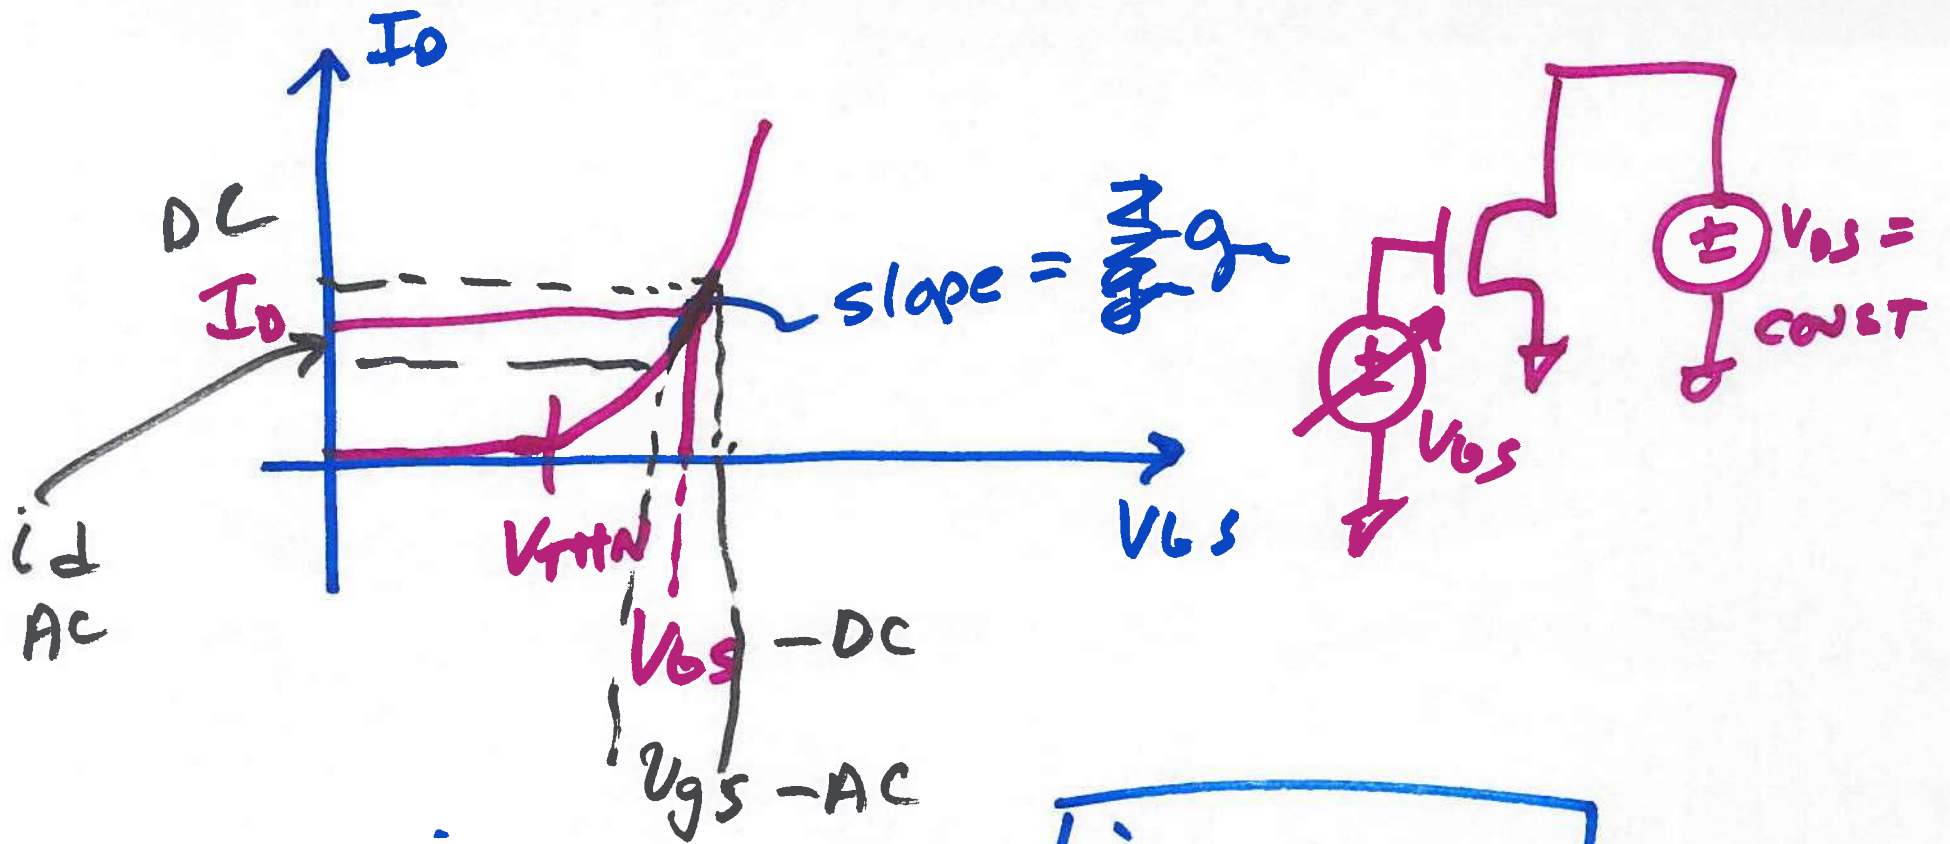 ID
DC
ID
slope = gm
VDS =
CONST
VGS
id
AC
VTHN
VGS
VGS - DC
vgs - AC